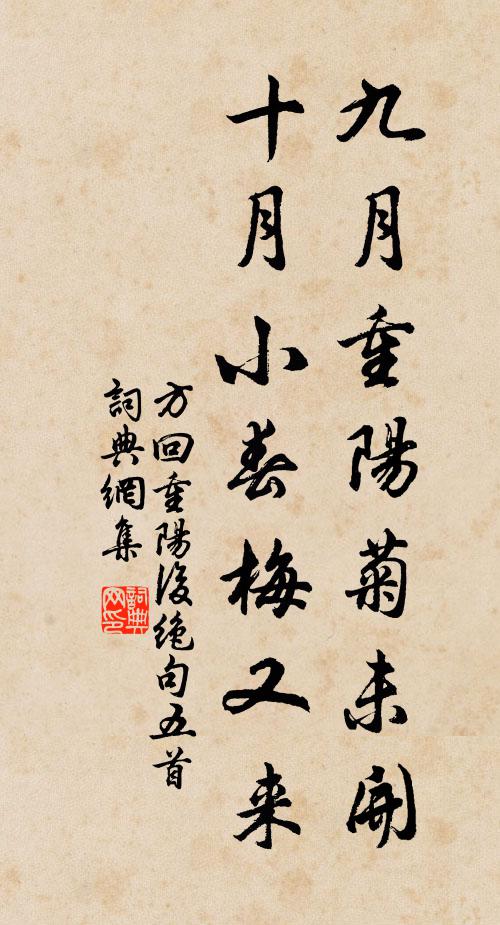 九月重陽菊未開
十月小春梅又来
方回重陽後絶句五首
詞典網集
詞典
网印